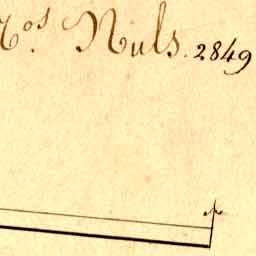 Nos Nuls. 2849